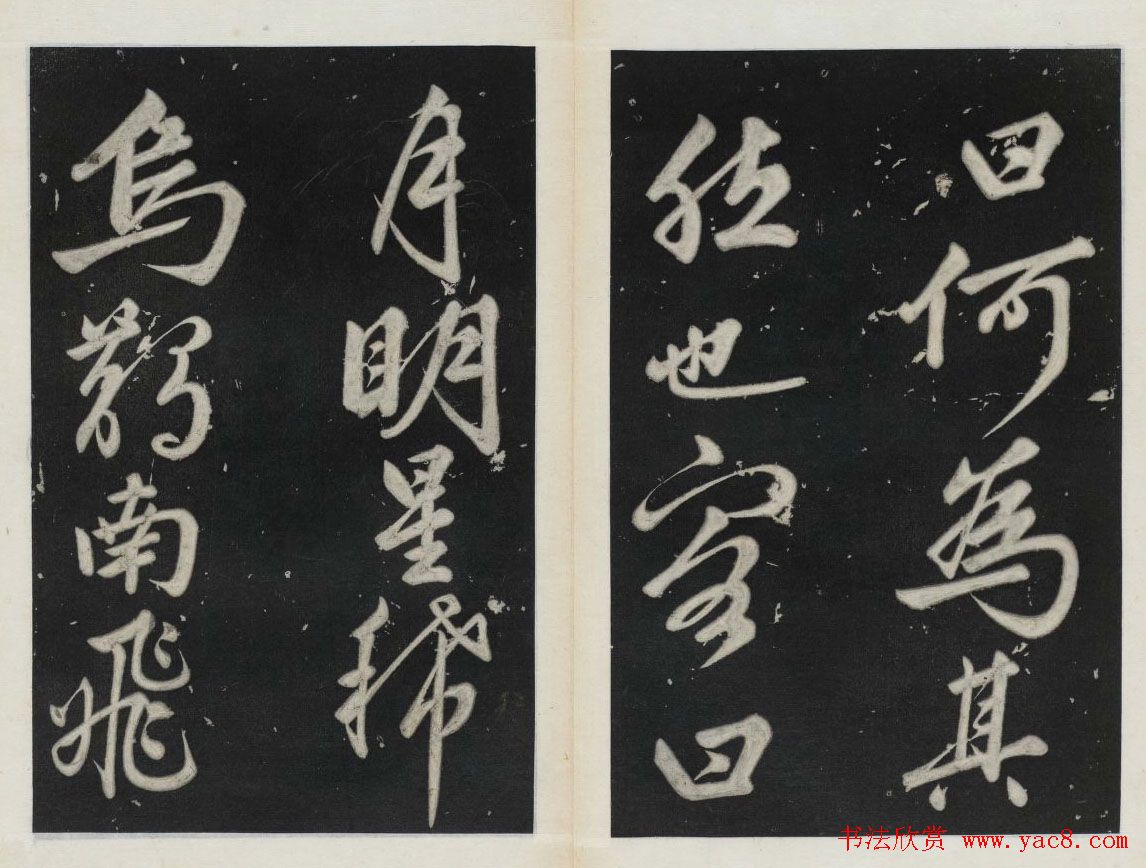 曰何為其
然也客曰
月明星稀
烏鵲南飛
书法欣赏 www.yac8.com